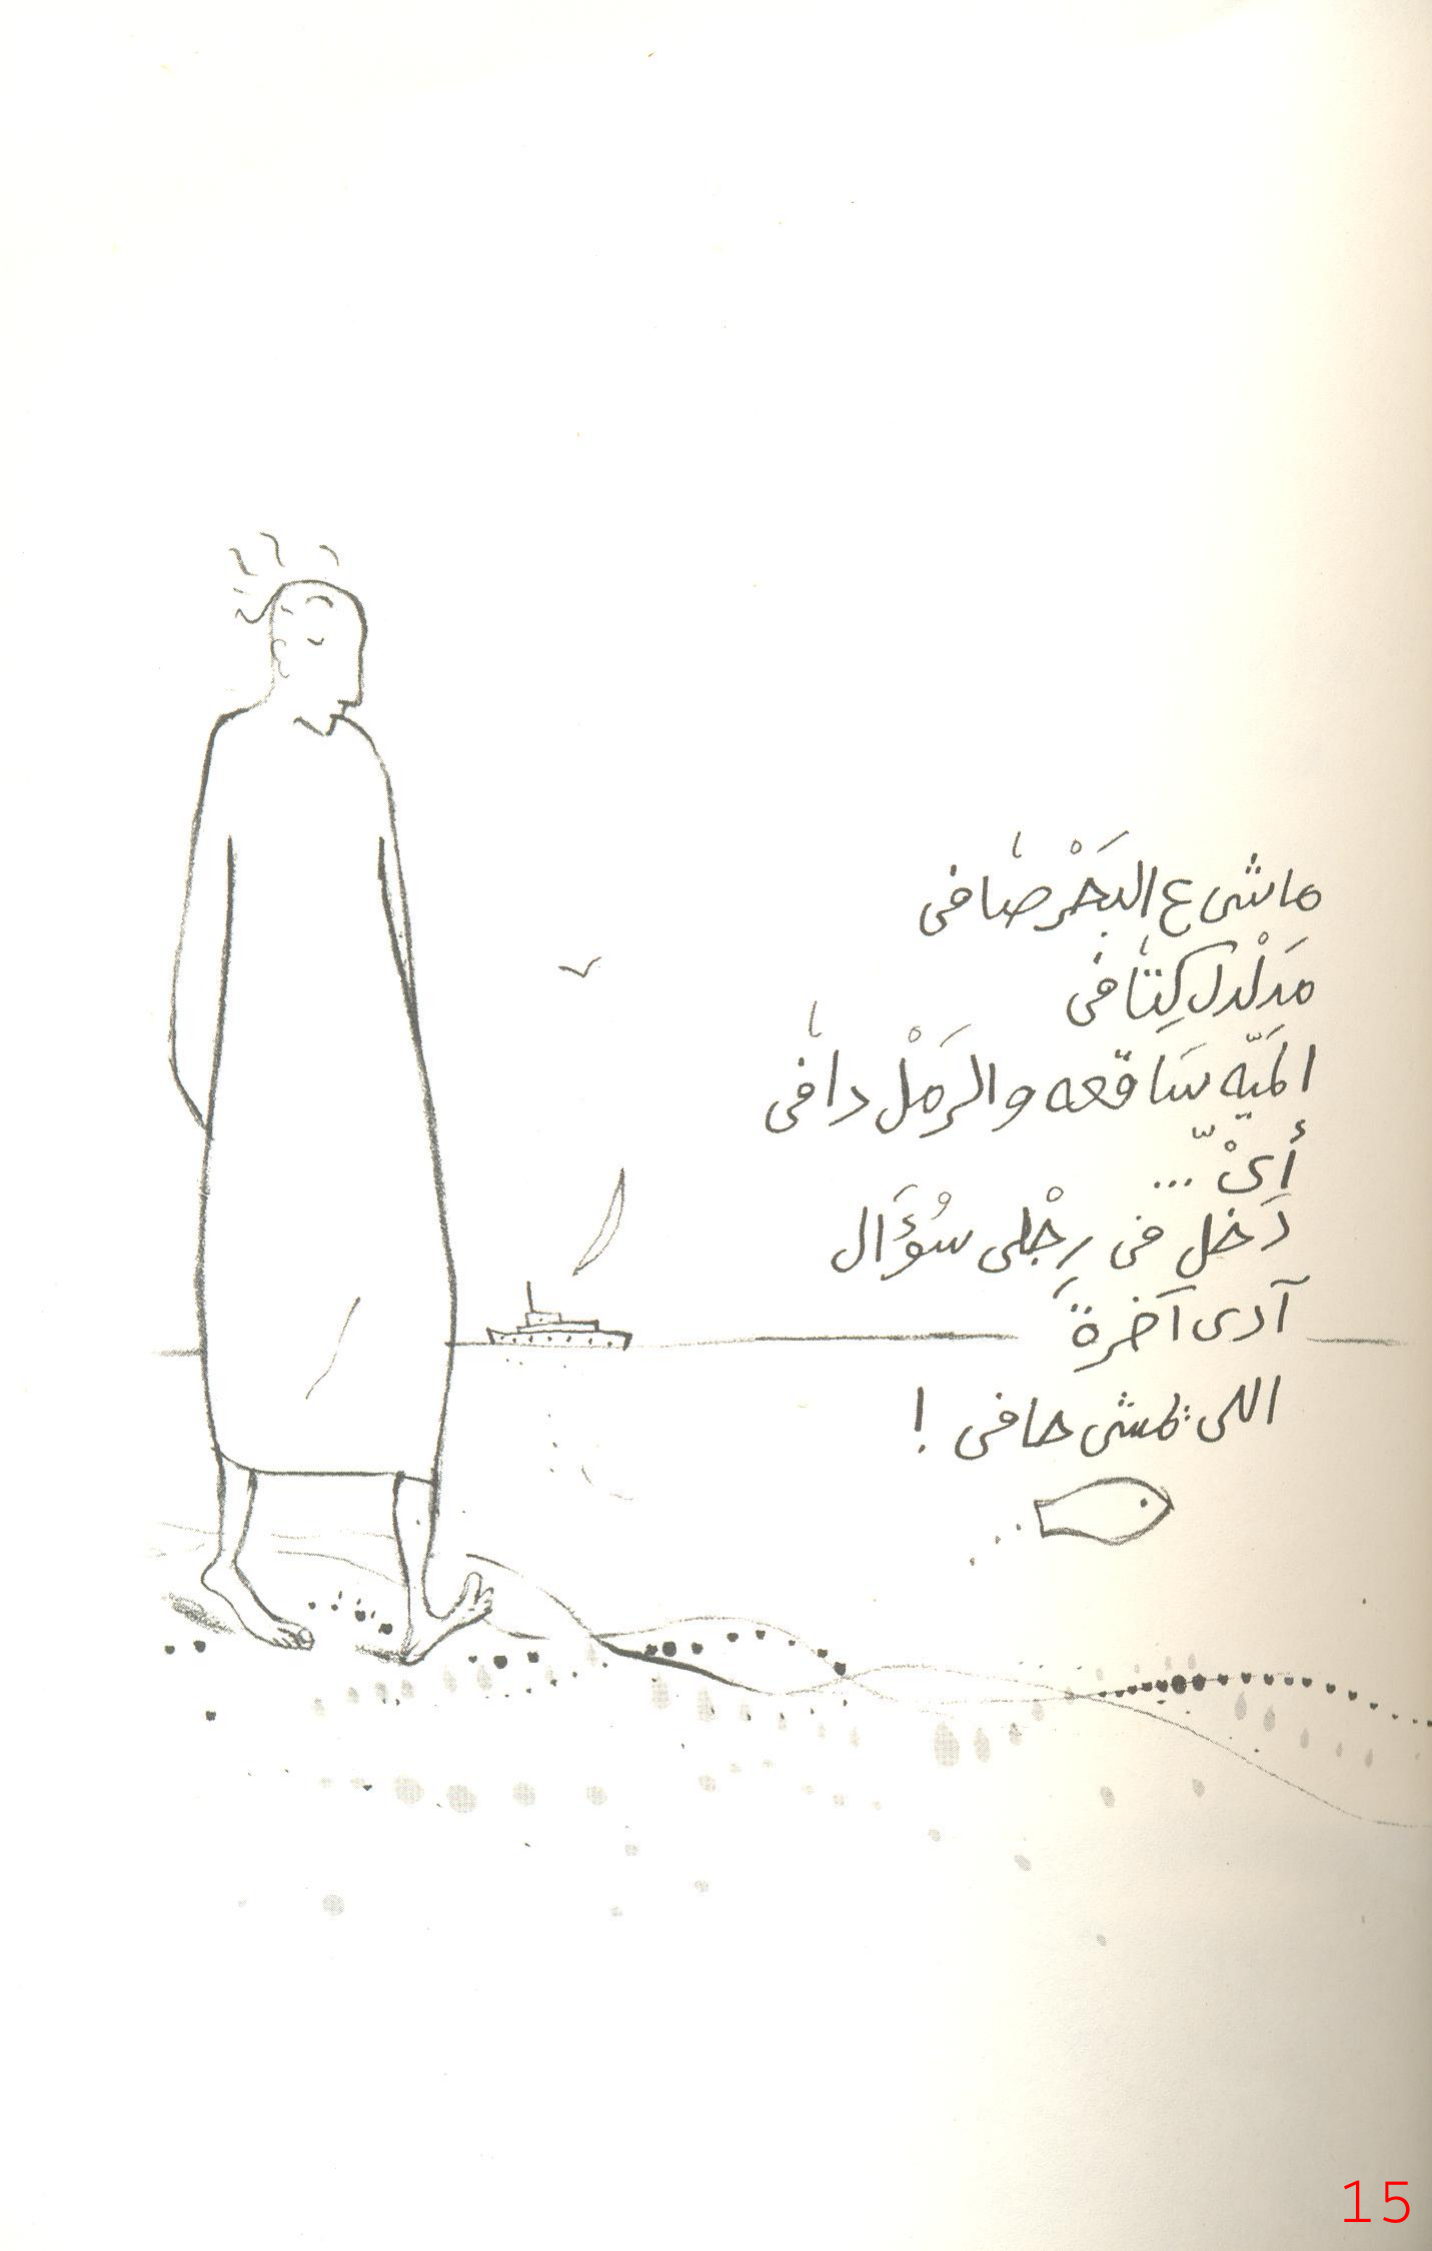 ماشى ع البَحْر صَافى
مَدَلْدِل كِتَافى
المَيّه سَاقعه والرَمْل دَافى
أىْ ...
دَخَل فى رِجْلى سُؤَال
آدى آخْرةِ
اللى يمشى حافى !
15